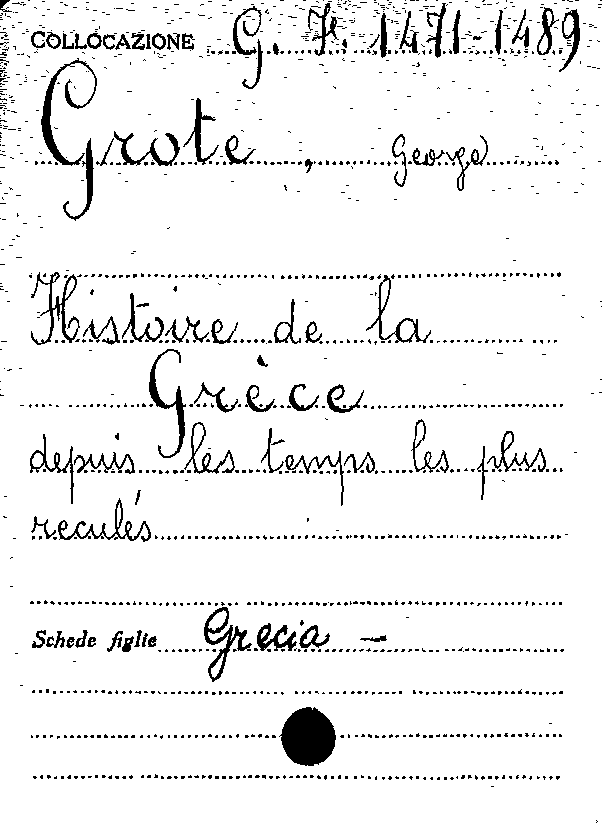 COLLOCAZIONE G. F. 1471-1489
Grote, George
Histoire de la
Grèce
depuis les temps les plus
reculés
Schede figlie Grecia -